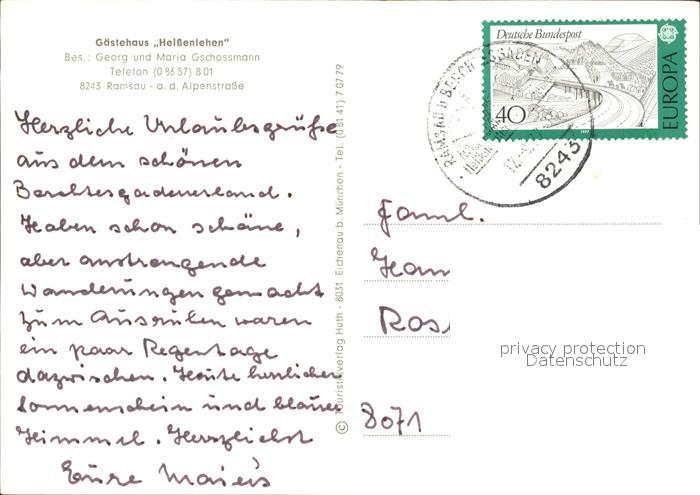 Gästehaus „Heißenlehen"
Bes.: Georg und Maria Gschossmann
Telefon (0 86 57) 8 01
8243 Ramsau - a. d. Alpenstraße
Herzliche Urlaubsgrüße
aus dem schönen
Berchtesgadenerland.
Haben schon schöne,
aber anstrengende
Wanderungen gemacht
zum Ausruhen waren
ein paar Regentage
dazwischen. Heute herrlicher
Sonnenschein und blauer
Himmel. Herzlichst
Eure Maier's
© Touristikverlag Huth - 8031 Eichenau b. München - Tel. (0 81 41) 7 07 79
Deutsche Bundespost
40
EUROPA
1977
RAMSAU b BERCHTESGADEN
8243
Faml.
8071
privacy protection
Datenschutz